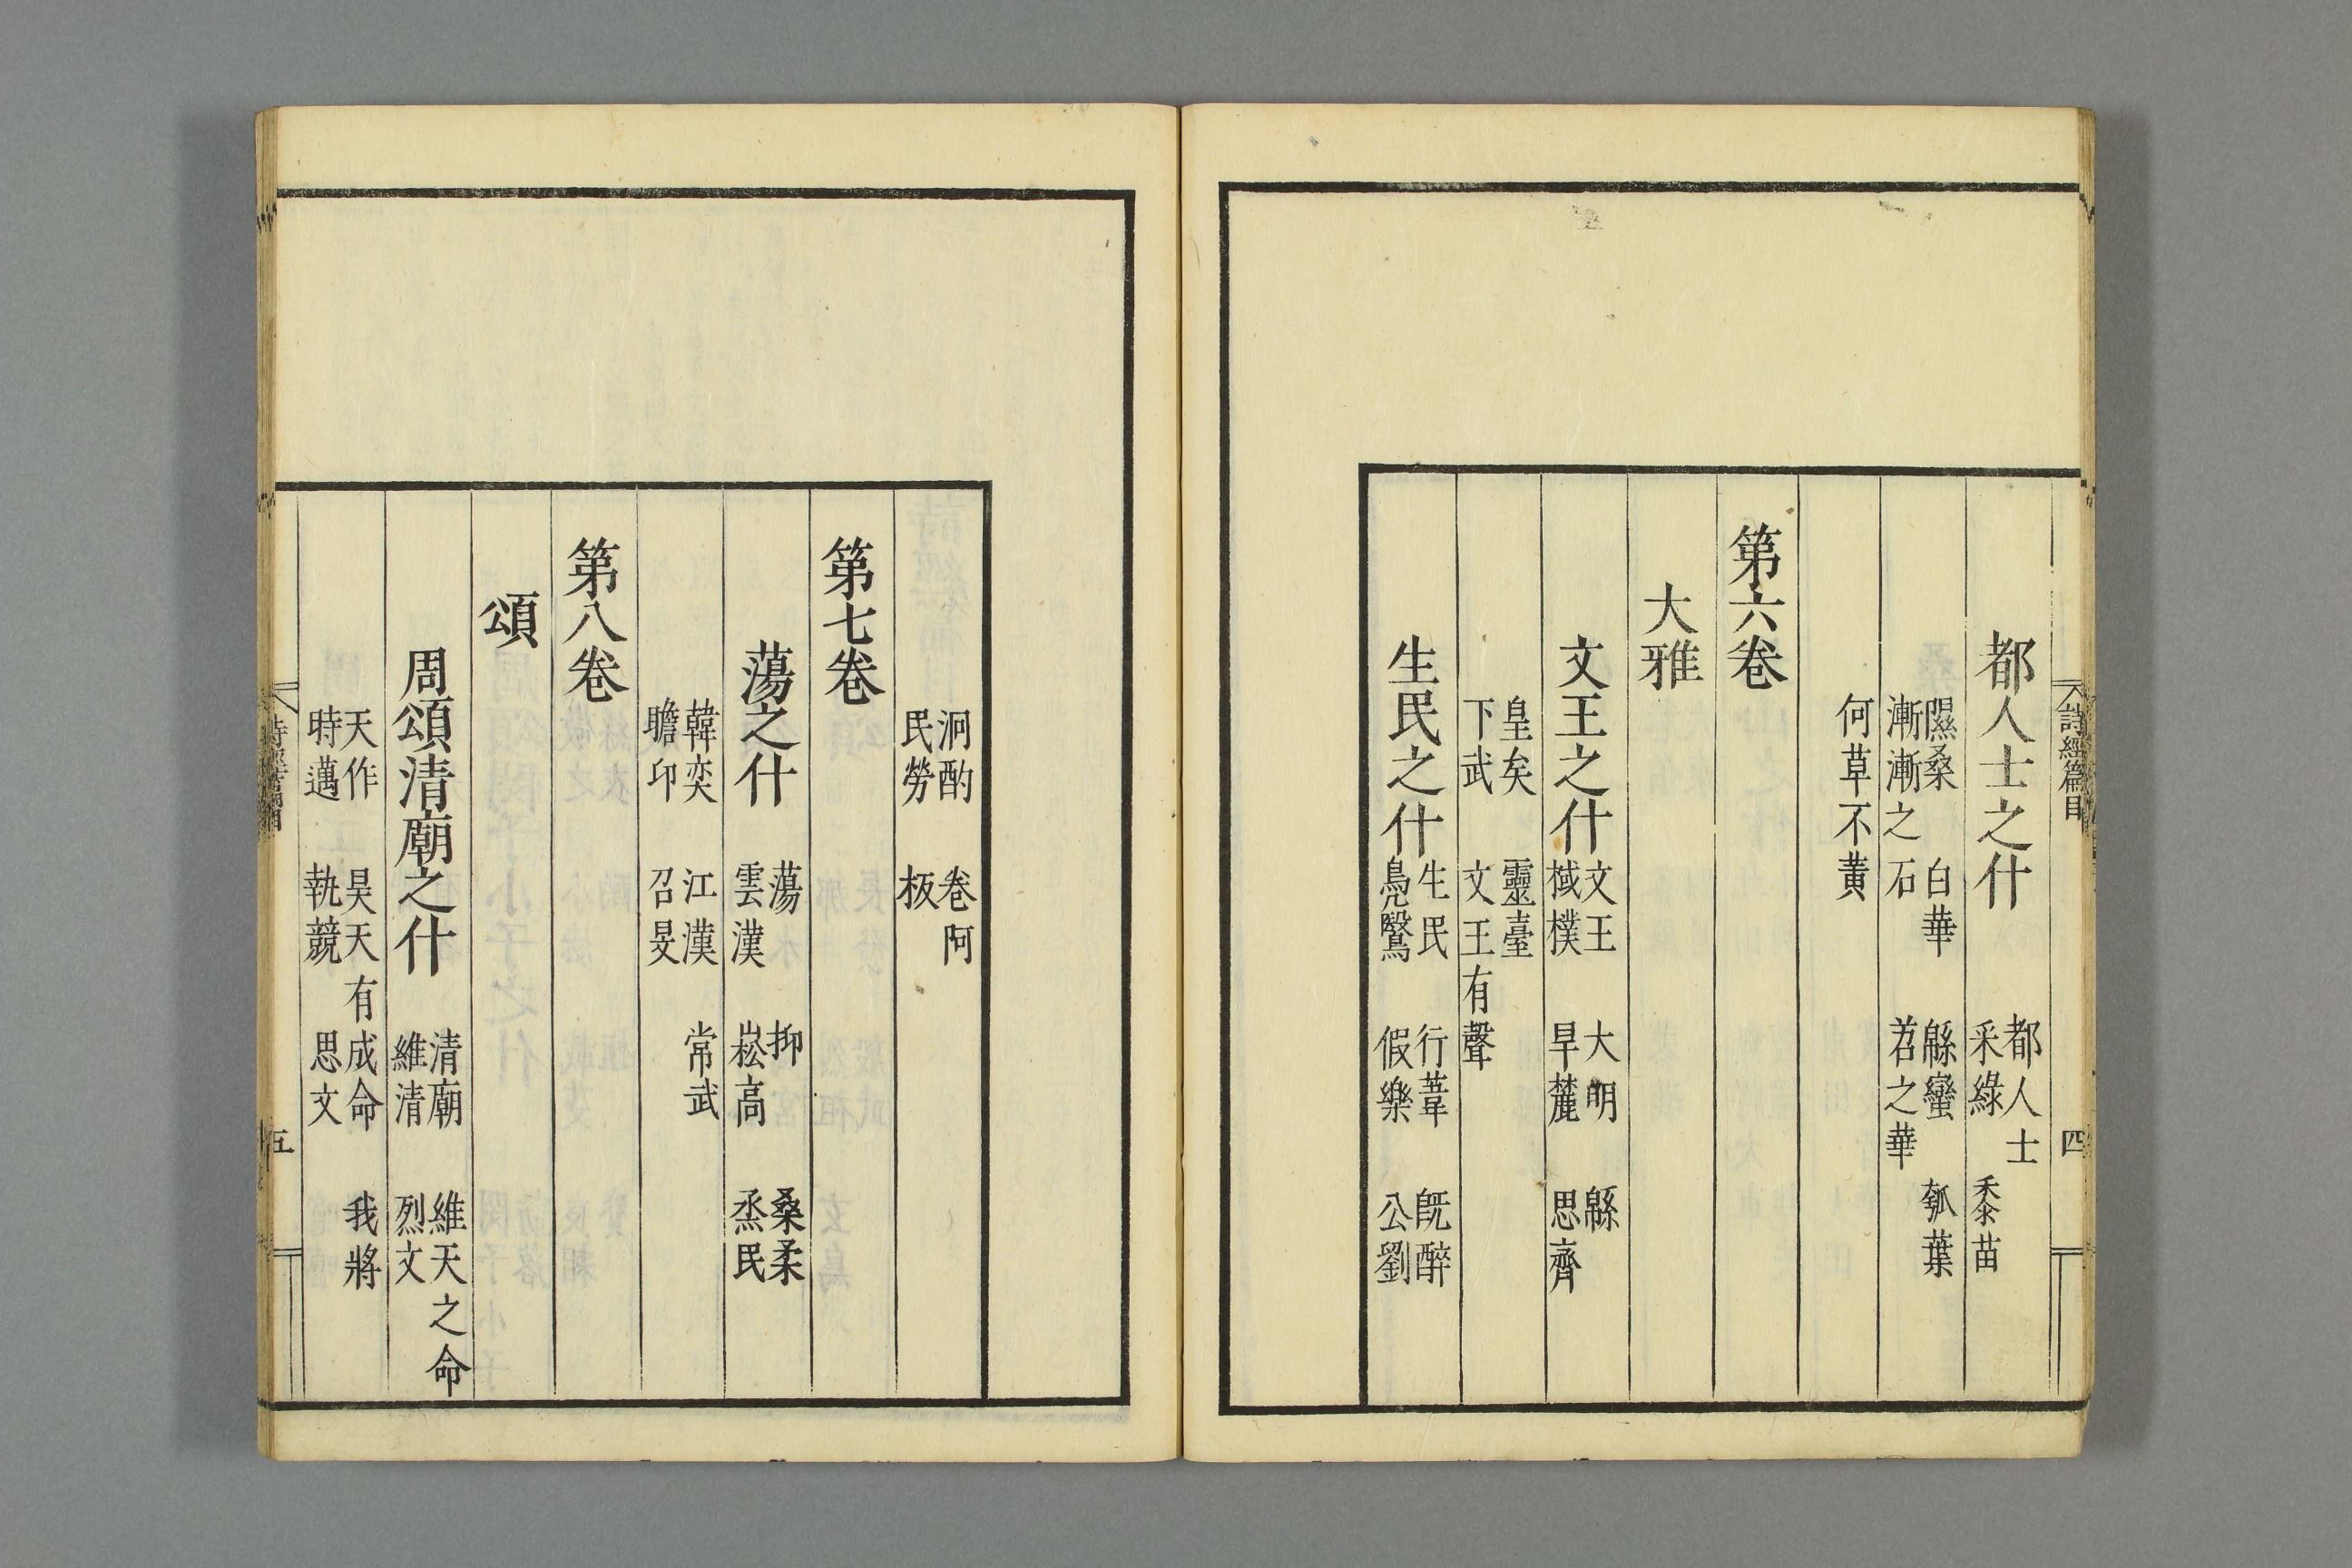 詩經篇目
四
都人士之什
都人士
采綠 黍苗
隰桑 白華 緜蠻 瓠葉
漸漸之石 苕之華
何草不黃
第六卷
大雅
文王之什
文王 大明 緜
棫樸 旱麓 思齊
皇矣 靈臺
下武 文王有聲
生民之什
生民 行葦 旣醉
鳧鷖 假樂 公劉
泂酌 卷阿
民勞 板
第七卷
蕩之什
蕩 抑 桑柔
雲漢 崧高 烝民
韓奕 江漢 常武
瞻卬 召旻
第八卷
頌
周頌清廟之什
清廟 維天之命
維清 烈文
天作 昊天有成命 我將
時邁 執競 思文
五